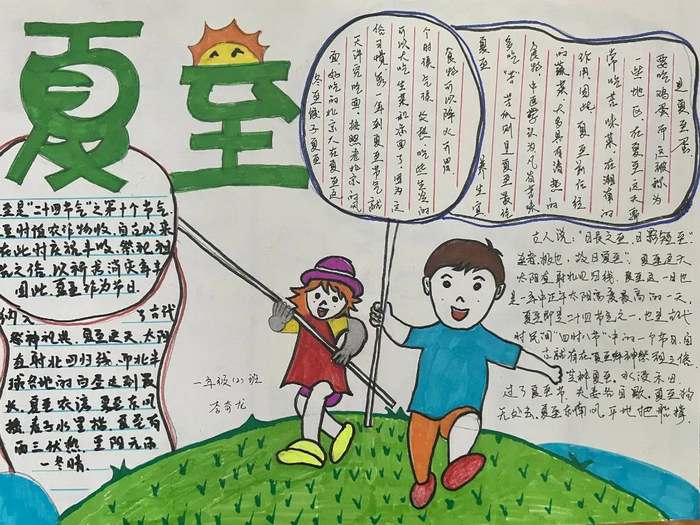 夏至
至是"二十四节气"之第十个节气,
至时值农作物收,自古以来
在此时庆祝丰收,祭祀祖
先之俗,以祈求消灾年丰
因此,夏至作为节日.
纳入 了古代
祭神礼典.夏至这天,太阳
直射北回归线,而北半
球各地的白昼达到最
长.夏至农谚:夏至东风
摇,麦子水里捞.夏至有
雨三伏热,重阳无雨
一冬晴.
冬至饺子夏至
面 好吃的北京人在夏至这
天讲究吃面.按照老北京的风
俗习惯,每到夏至节气就
可以大吃生菜和凉面了,因为这
个时候气候炎热吃些生冷的
食物可以降火开胃
夏至 养生宜
多吃"苦"苦瓜则夏至最佳
食物中医学认为凡有苦味
的蔬菜,大多具有清热的
作用因此,夏至前后经
常吃苦味菜在湖南的
一些地区在夏至这天要
要吃鸡蛋而且被称为
过夏至蛋
古人说:"日长之至,日影短至"
至者,极也,故曰夏至".夏至这天
太阳直射北回归线.夏至这一日也
是一年中正午太阳高度最高的一天
夏至即是二十四节气之一,也是古代
时民间"四时八节"中的一个节日.自
古就有在夏至拜神祭祖之俗
芒种夏至,水浸禾田
过了夏至节,夫妻各自歇.夏至狗
无处走.夏至东南风,平地把船撑
一年级(2)班
李奇龙